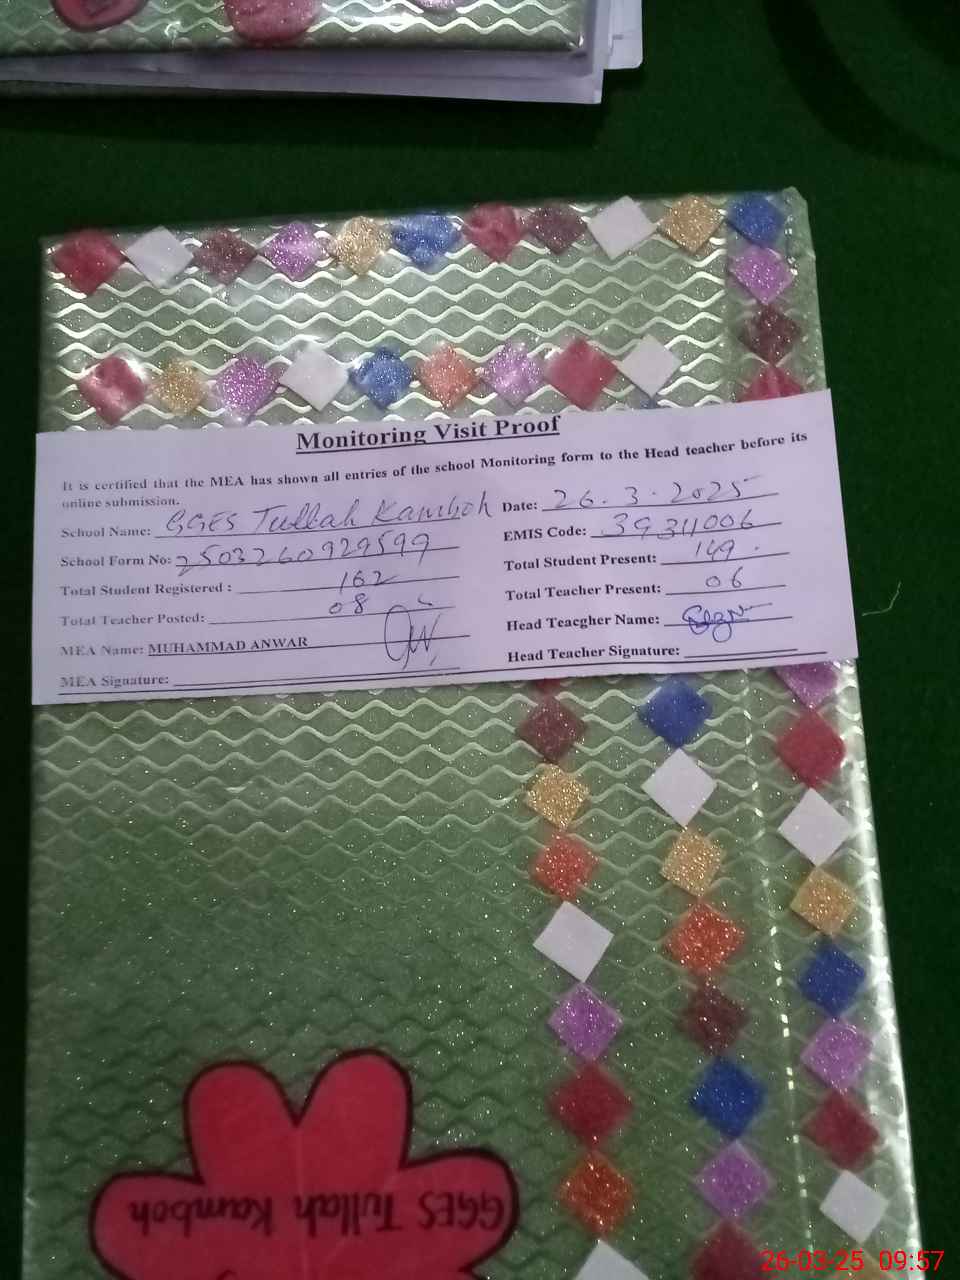 Monitoring Visit Proof
It is certified that the MEA has shown all entries of the school Monitoring form to the Head teacher before its
online submission.
School Name: GGES Tullah Kamboh Date: 26.3.2025
School Form No: 2503260929599 EMIS Code: 39311006
Total Student Registered : 162 Total Student Present: 149
Total Teacher Posted: 08 Total Teacher Present: 06
MEA Name: MUHAMMAD ANWAR Head Teacgher Name:
MEA Signature: Head Teacher Signature:
GGES Tullah Kamboh
26-03-25 09:57